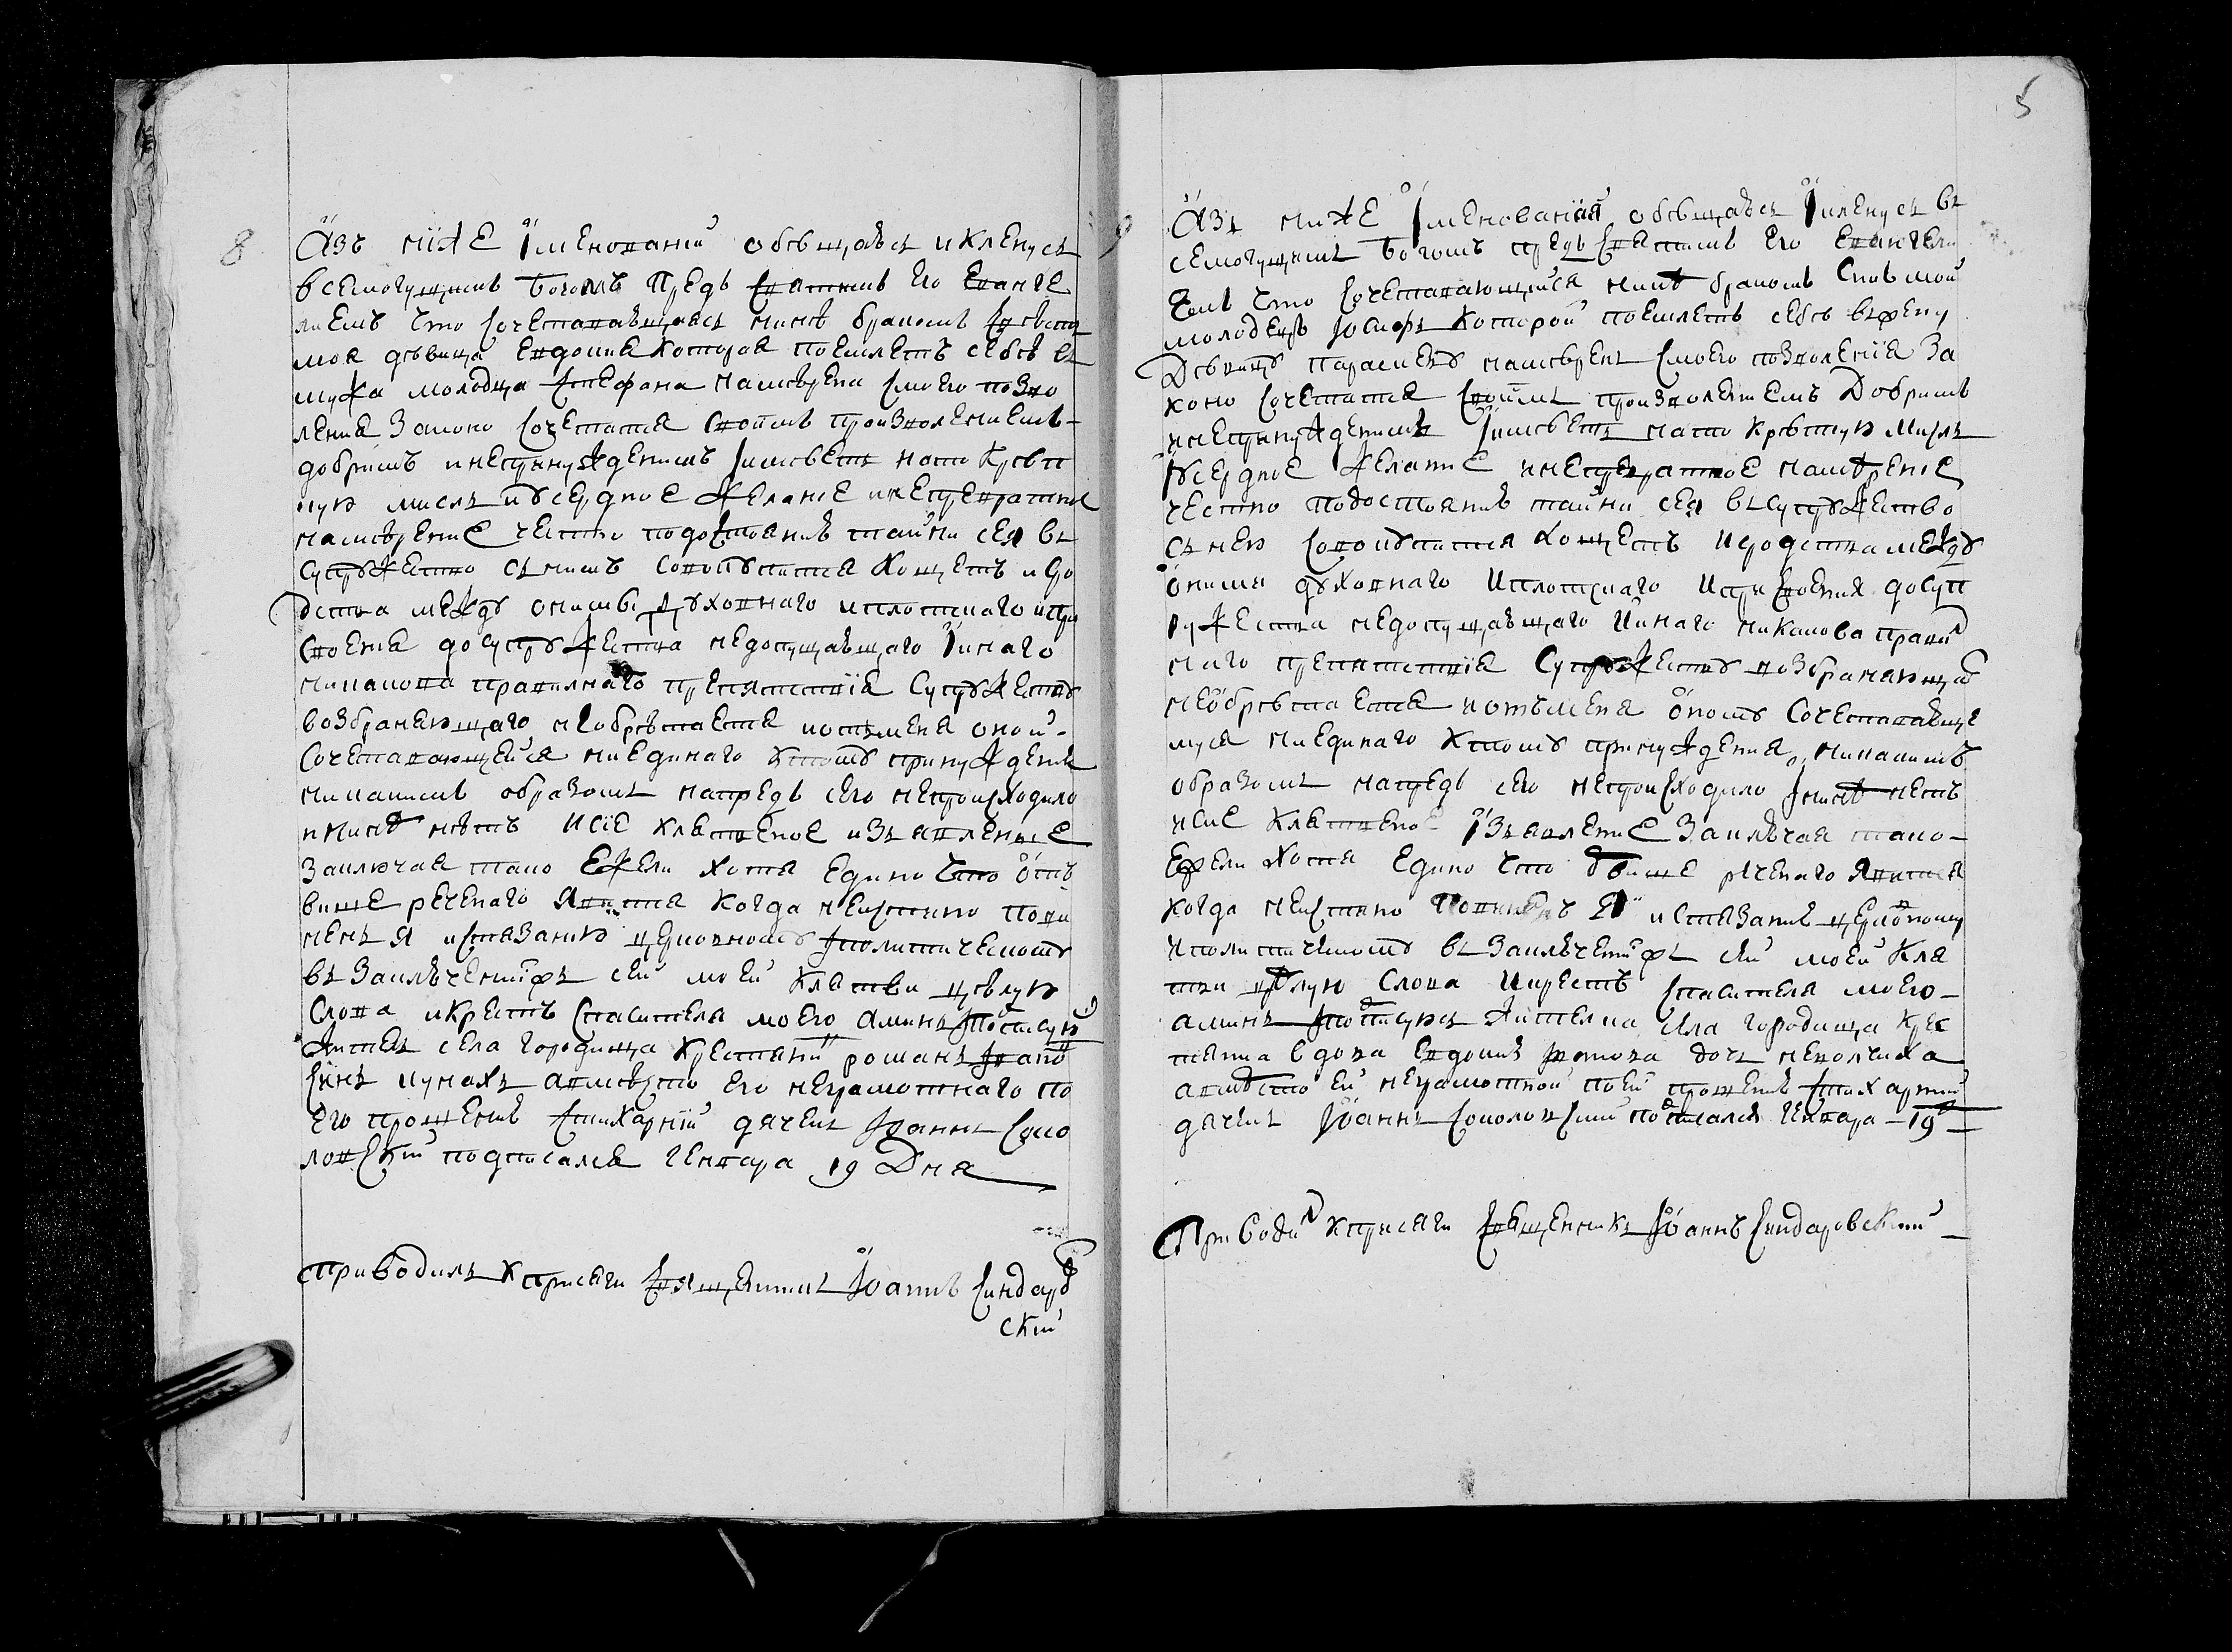 8
Азъ ниже Іменований обѣщаюсь и кленусь
всемогущимъ Богомъ предъ святимъ Его Еванге
лиемъ что сочетавающаясь нинѣ бракомъ
моя дѣвица Евдокия которая поемлетъ себѣ въ
мужа молодца Стефана намѣрена с моего позво
ления законо сочетатся своимъ произволениемъ
добримъ и непринужденимъ Імѣетъ на то крѣп
кую мисль и усердное желание и непревратное
намѣрение честно по достоянию тайни сея въ
супружество съ нимъ совокупитися хощетъ и сро
дства между оними духовнаго и плотскаго и при
своения до супружества недопущающаго Іинаго
никакова правилнаго препятствїя супружеству
возбраняющаго необрѣтаетя и отъ мена оной
сочетавающейся ни единаго к тому принуждения
никакимъ образомъ напредь сего непроисходило
и нинѣ нѣтъ и сїе клятвеное изъявление
заключая тако Ежели хотя Едино что отъ
више реченаго явится когда неистинно пови
ненъ я истязанию церковному и политическому
въ заключениїжъ сей моей клятви цѣлую
слова и крестъ спасителя моего аминь
житель села городища крестянин роман Івано
синъ а вмѣсто его неграмотнаго по
Его прошению стихарний дячекъ Іоаннъ Соко
ловский подписался Генвара 19 Дня
приводилъ к присяги священникъ Іоаннъ Синдаров
ский
5
9
Азъ ниже Іменованая обѣщаюсь І кленусь въ
семогущимъ Богомъ предъ святимъ Его Евангели
емъ что сочетавающийся нинѣ бракомъ синъ мой
молодецъ Іосифъ которой поемлетъ себѣ въ жену
Дѣвицу Параскеву намѣренъ с моего позволения за
коно сочетатся своимъ произволениемъ Добримъ
и непринужденимъ Імѣетъ на то крѣпкую мисль
І усердное желание и непревратное намѣрение
честно по достоянию тайни сея въ супружество
съ нею совокупитися хощетъ и сродства между
оними духовнаго и плотскаго и присвоения до суп
ружества недопущающаго и инаго никакова правил
наго препятствїя супружеству возбраняющаго
необрѣтаетя и отъ мена оному сочетавающе
муся ни единаго к тому принуждения, никакимъ
образомъ напредь сего непроисходило І нинѣ нетъ
и сие клятвеное Ізъявление заключая тако
Ежели хотя Едино что отъ више реченаго явится
когда неистинно повиненъ я истязанию церковному
и политическому въ заключениїжъ сей моей кля
тви цѣлую слова и крестъ спасителя моего
аминь житела села городища крес
тянка вдова Евдокия дочь
а вмѣсто ей неграмотной по ей прошению стихарний
дячекъ Іоаннъ Соколовский подписался Генвара 19
Приводил к присяги священникъ Іоаннъ Синдаровский